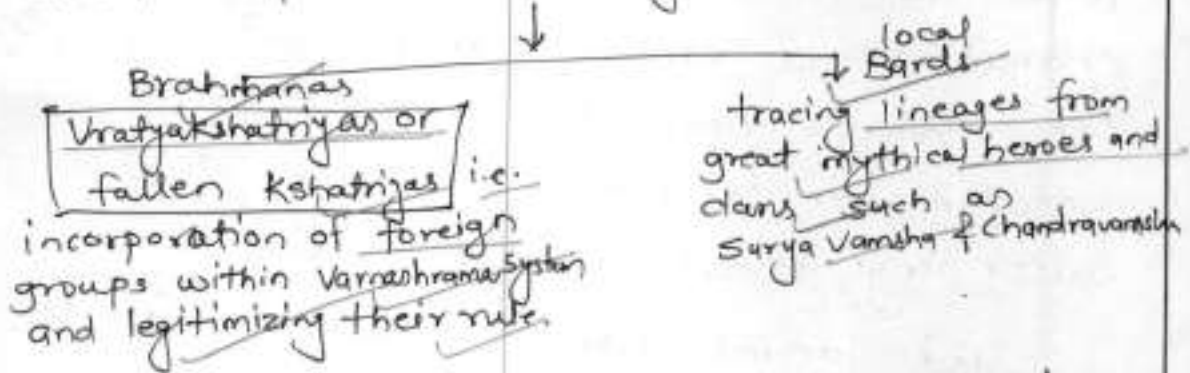 Brahmanas
Vratyakshatriyas or
fallen Kshatriyas i.e.
incorporation of foreign
groups within Varnashrama System
and legitimizing their rule.
local
Bards
tracing lineages from
great mythical heroes and
clans such as
Surya Vamsha & Chandravamsha